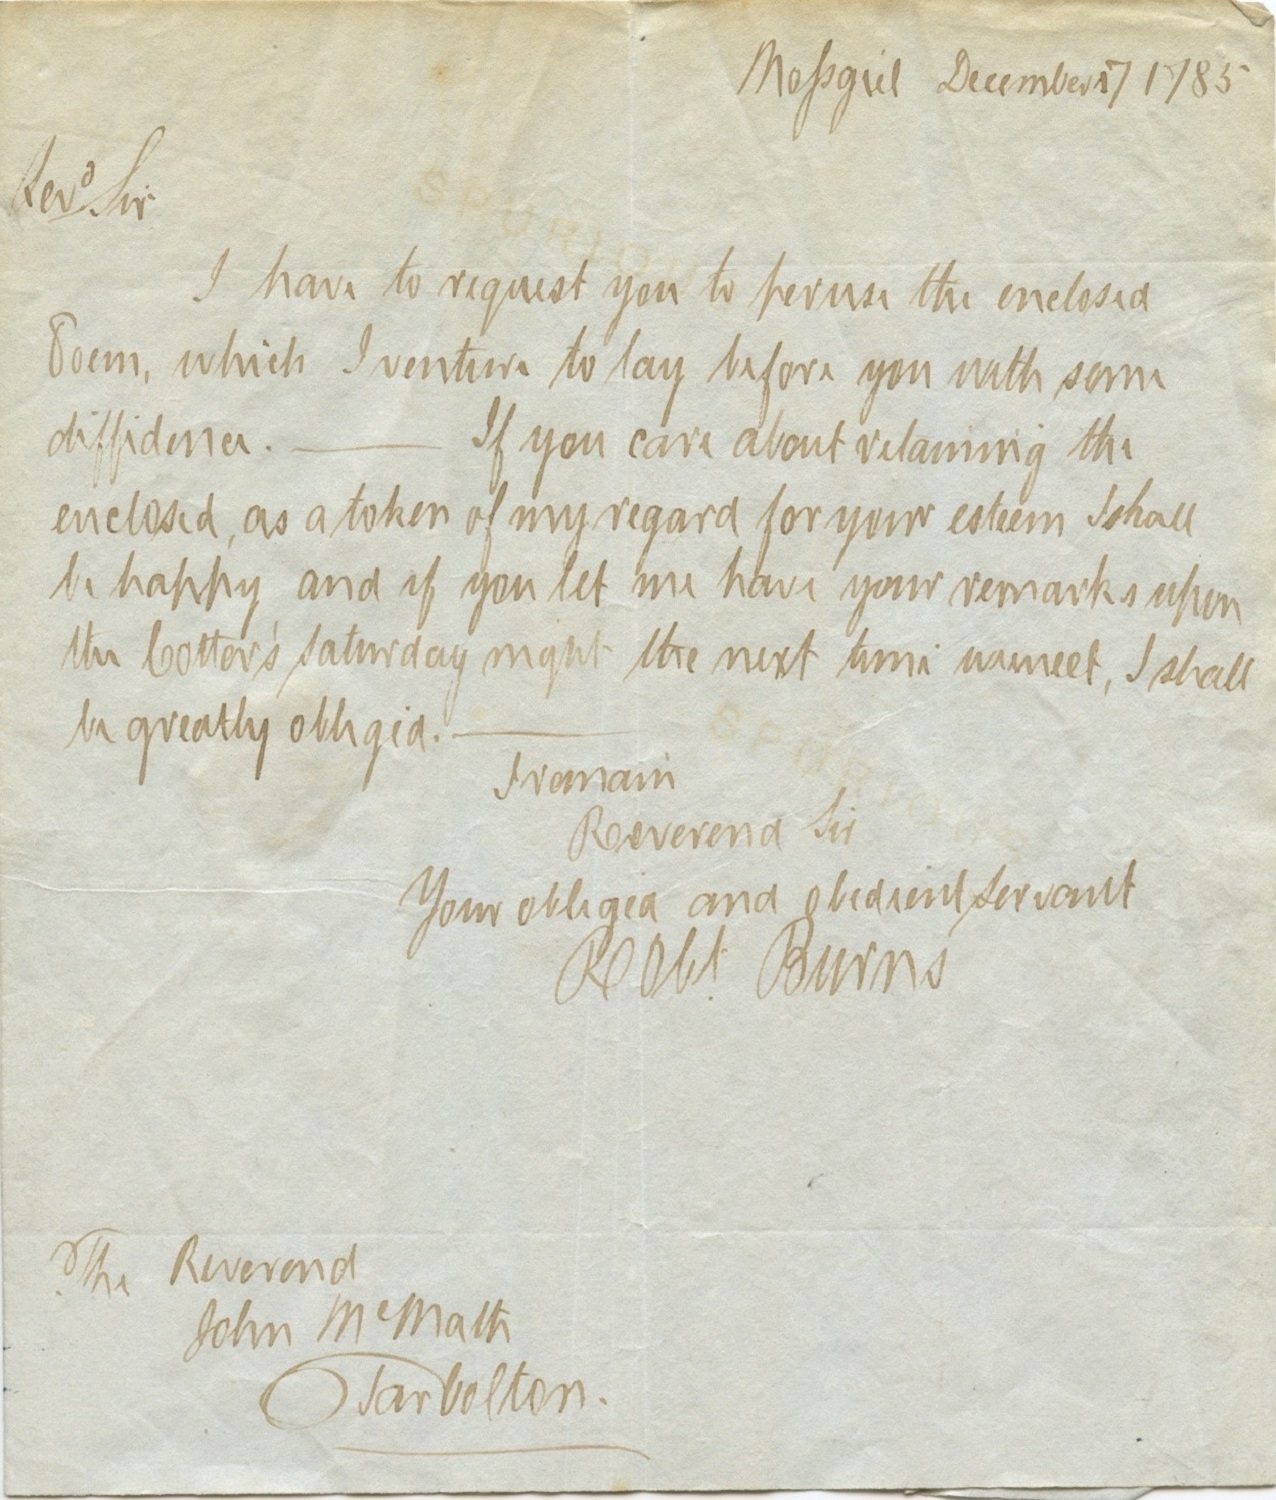 Mossgiel December 17 1785
Revd Sir
SPURIOUS
I have to request you to peruse the enclosed
Poem, which I venture to lay before you with some
diffidence. — If you care about retaining the
enclosed, as a token of my regard for your esteem I shall
be happy, and if you let me have your remarks upon
the Cotter's Saturday night the next time we meet, I shall
be greatly obliged. —
SPURIOUS
I remain
Reverend Sir
Your obliged and obedient servant
Robt. Burns
The Reverend
John McMath
Tarbolton.